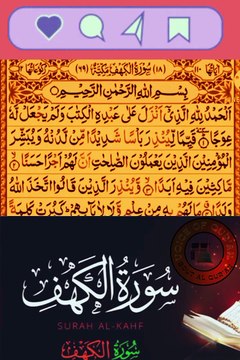 اٰیاتها ١١٠
(١٨) سُوْرَةُ الْكَهْفِ مَكِّيَّةٌ (٦٩)
بِسْمِ اللهِ الرَّحْمٰنِ الرَّحِيْمِ
اَلْحَمْدُ لِلّٰهِ الَّذِيْٓ اَنْزَلَ عَلٰى عَبْدِهِ الْكِتٰبَ وَلَمْ يَجْعَلْ لَّهٗ
عِوَجًا قَيِّمًا لِّيُنْذِرَ بَاْسًا شَدِيْدًا مِّنْ لَّدُنْهُ وَيُبَشِّرَ
الْمُؤْمِنِيْنَ الَّذِيْنَ يَعْمَلُوْنَ الصّٰلِحٰتِ اَنَّ لَهُمْ اَجْرًا حَسَنًا
مَّاكِثِيْنَ فِيْهِ اَبَدًا وَّيُنْذِرَ الَّذِيْنَ قَالُوا اتَّخَذَ اللهُ
مَا لَهُمْ بِهٖ مِنْ عِلْمٍ وَّلَا كَبُرَتْ كَلِمَةً
سُورَةُ الْكَهْفِ
SURAH AL-KAHF
سُورَةُ الْكَهْف